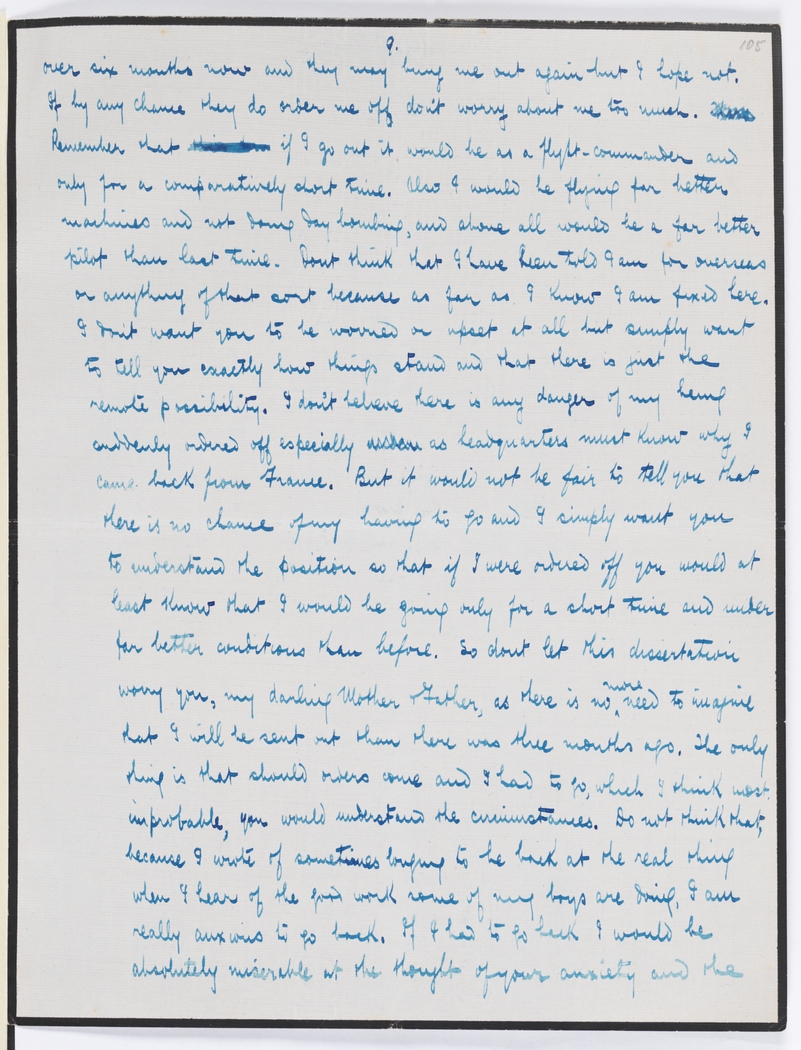 9.
105
over six months now and they may bung me out again but I hope not.
If by any chance they do order me off don't worry about me too much.
Remember that if I go out it would be as a flight-commander and
only for a comparatively short time. Also I would be flying far better
machines and not doing day bombing, and above all would be a far better
pilot than last time. Dont think that I have been told I am for overseas
or anything of that sort because as far as I know I am fixed here.
I don't want you to be worried or upset at all but simply want
to tell you exactly how things stand and that there is just the
remote possibility. I don't believe there is any danger of my being
suddenly ordered off especially as headquarters must know why I
came back from France. But it would not be fair to tell you that
there is no chance of my having to go and I simply want you
to understand the position so that if I were ordered off you would at
least know that I would be going only for a short time and under
far better conditions than before. So dont let this dissertation
worry you, my darling Mother & Father, as there is no more need to imagine
that I will be sent out than there was three months ago. The only
thing is that should orders come and I had to go, which I think most
improbable, you would understand the circumstances. Do not think that,
because I wrote of sometimes longing to be back at the real thing
when I hear of the good work some of my boys are doing, I am
really anxious to go back. If I had to go back I would be
absolutely miserable at the thought of your anxiety and the